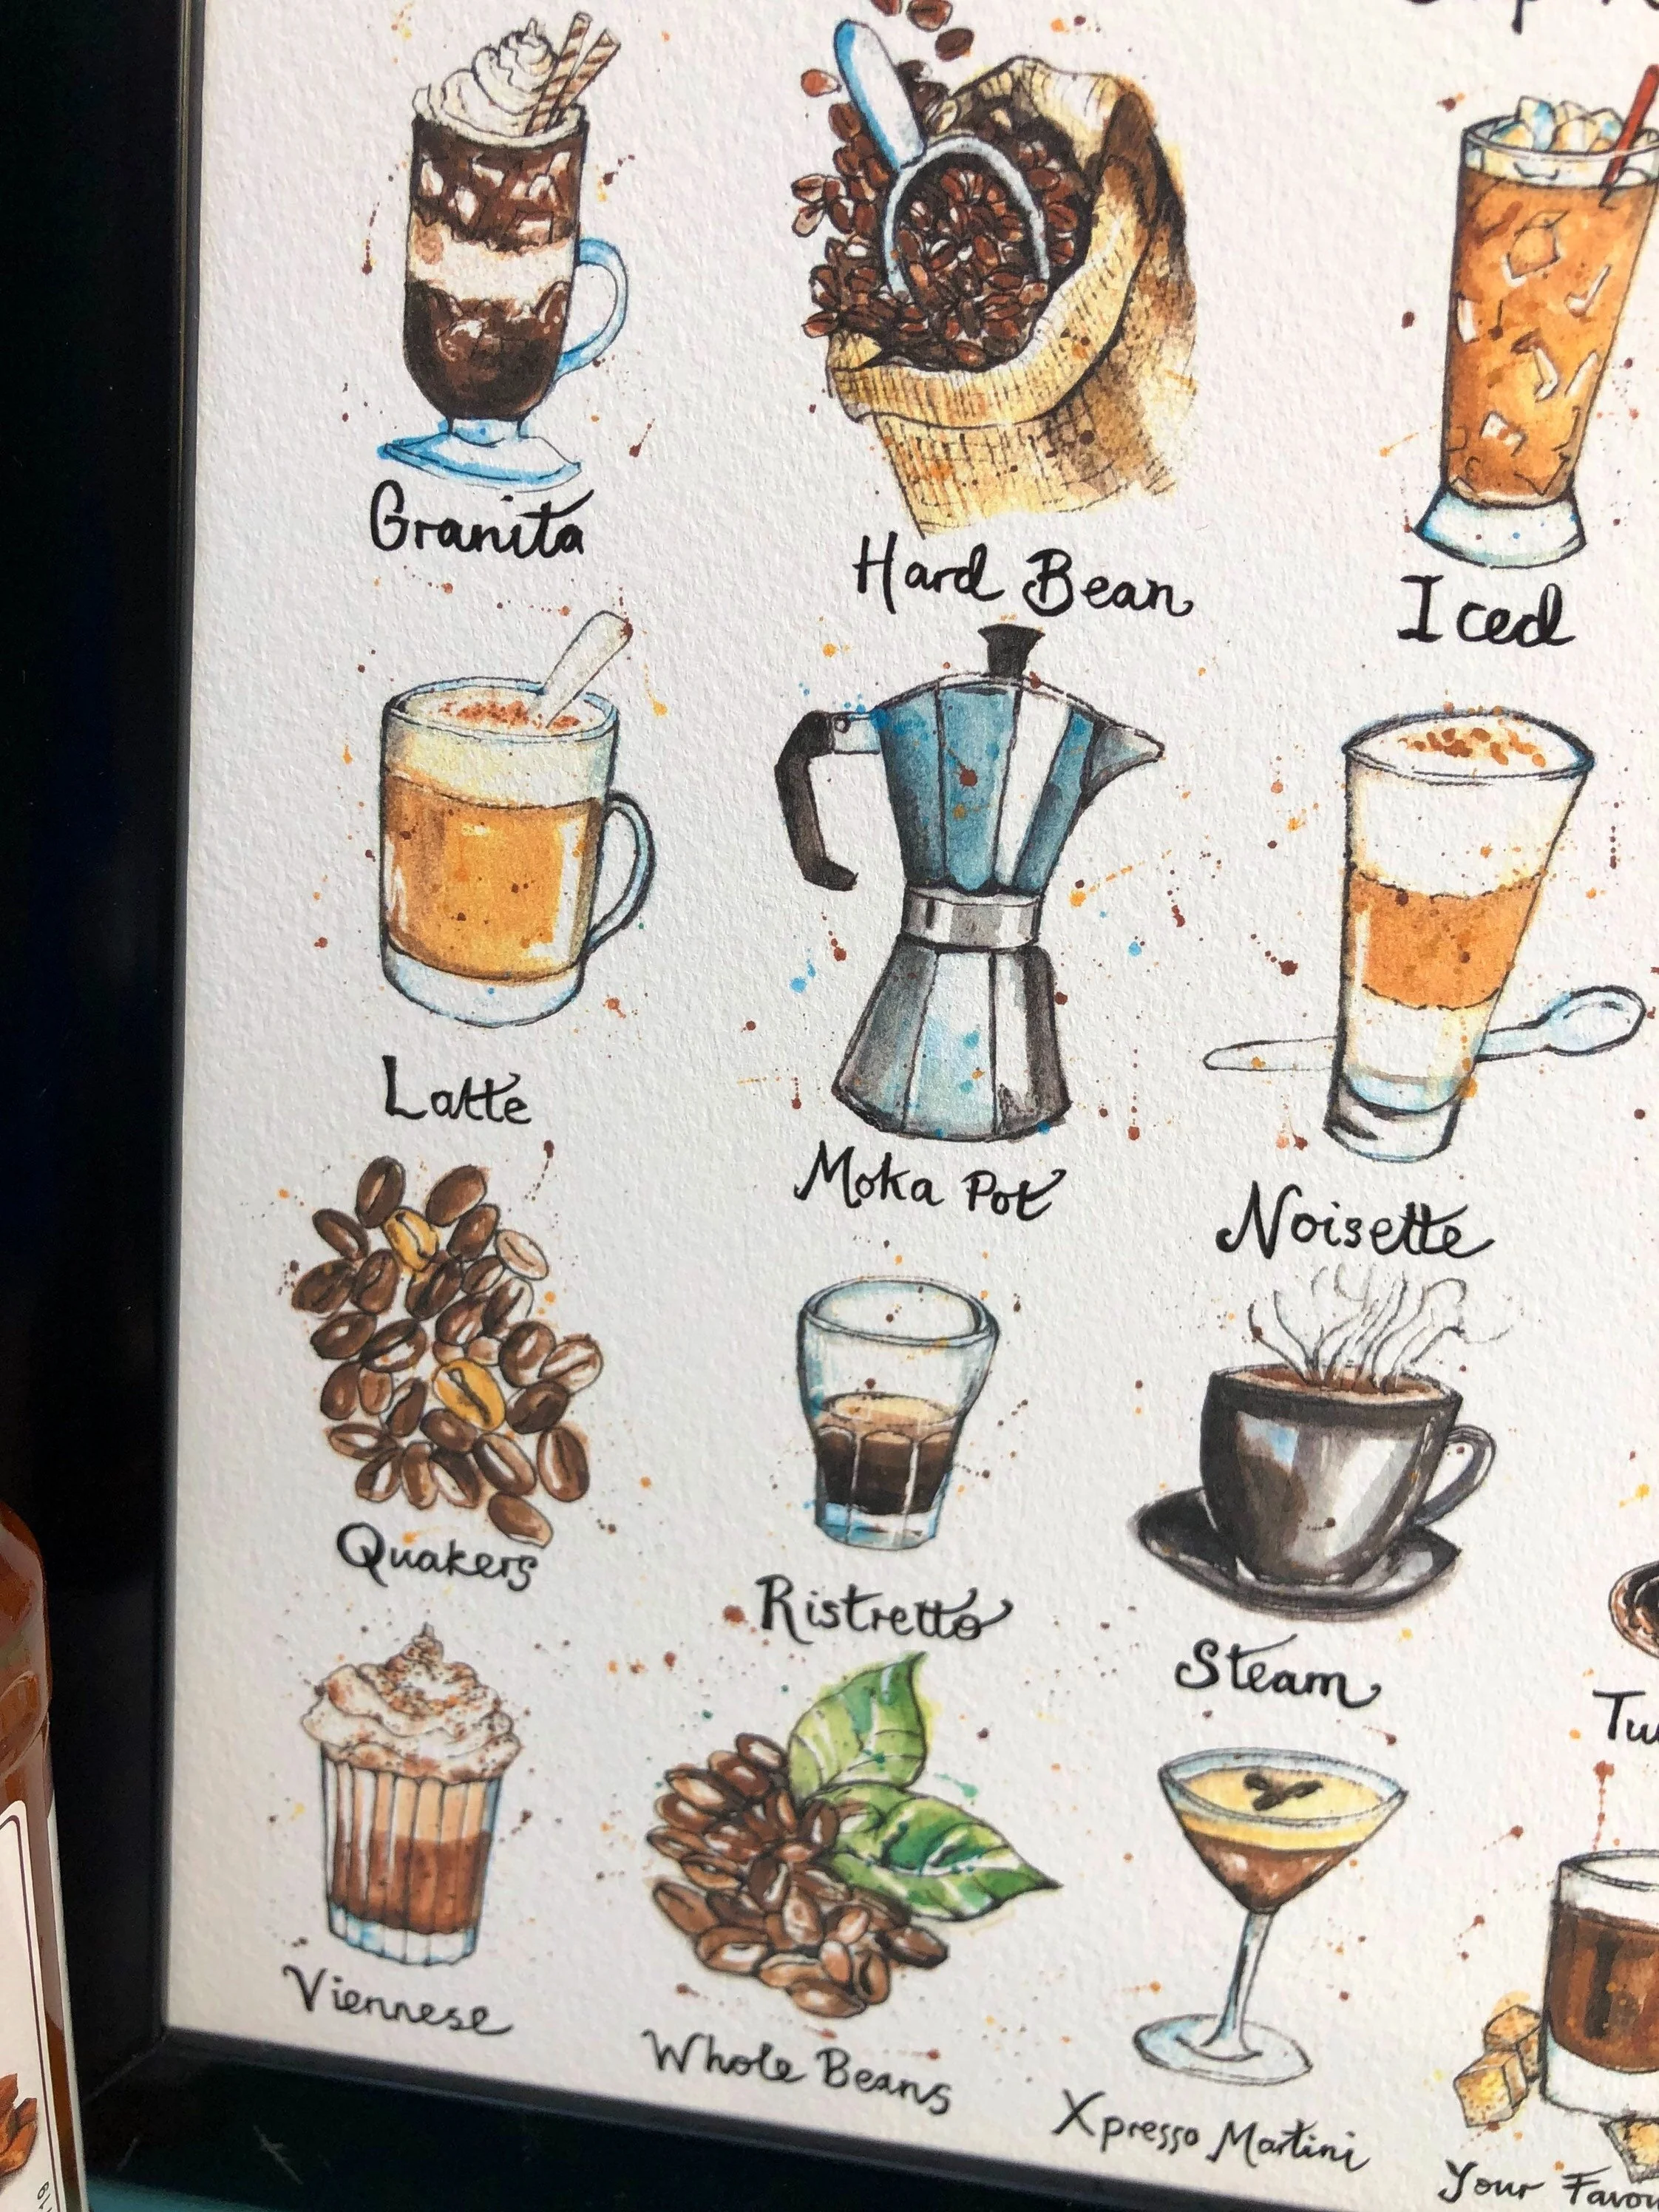 Granita
Hard Bean
Iced
Latte
Moka Pot
Noisette
Quakers
Ristretto
Steam
Viennese
Whole Beans
Xpresso Martini
Your